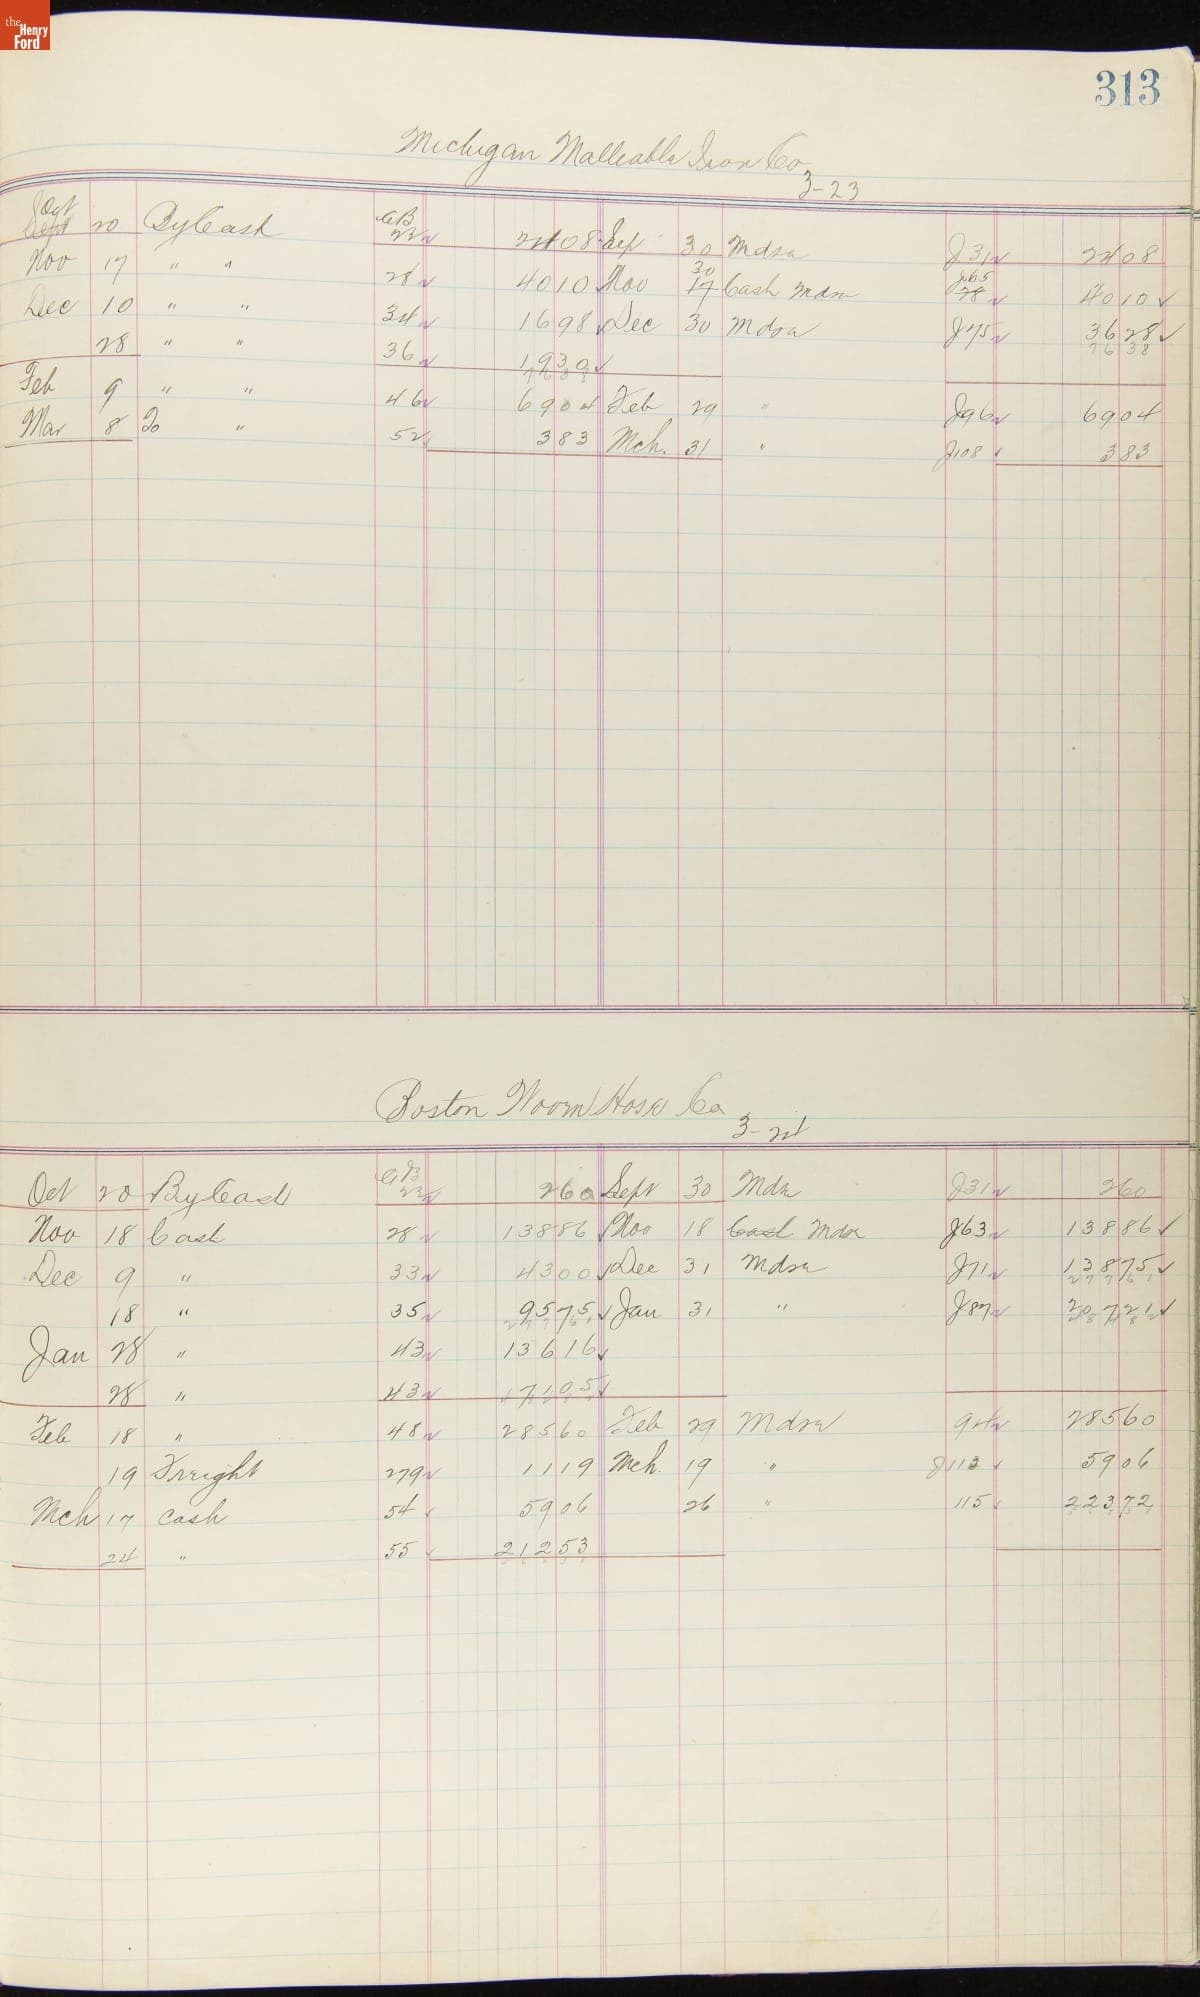 the Henry Ford
313
Michigan Malleable Iron Co
3-23
Oct Sept 20 By Cash CB 23 24 08 Sep 30 Mdse J31 24 08
Nov 17 " " 28 40 10 Nov 30 17 Cash Mdse J65 28 40 10
Dec 10 " " 34 16 98 Dec 30 Mdse J75 36 28
76 38
28 " " 36 19 30
76 38
Feb 9 " " 46 69 04 Feb 29 " J96 69 04
Mar 8 To " 52 3 83 Mch. 31 " J108 3 83
Boston Woven Hose Co
3-24
Oct 20 By Cash CB 23 2 60 Sept 30 Mdse J31 2 60
Nov 18 Cash 28 138 86 Nov 18 Cash Mdse J63 138 86
Dec 9 " 33 43 00 Dec 31 Mdse J71 138 75
277 61
18 " 35 95 75 Jan 31 " J87 207 21
277 61
Jan 28 " 43 136 16
28 " 43 71 05
Feb 18 " 48 285 60 Feb 29 Mdse 94 285 60
19 Freight 279 11 19 Mch. 19 " J112 59 06
Mch 17 Cash 54 59 06 26 " 115 223 72
24 " 55 212 53